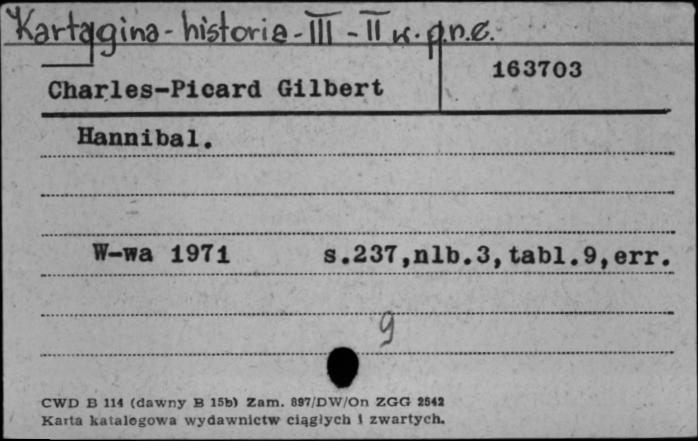 Kartagina - historia - III - II w. p.n.e.
163703
Charles-Picard Gilbert
Hannibal.
W-wa 1971 s.237,nlb.3,tabl.9,err.
9
CWD B 114 (dawny B 15b) Zam. 897/DW/On ZGG 2542
Karta katalogowa wydawnictw ciągłych i zwartych.